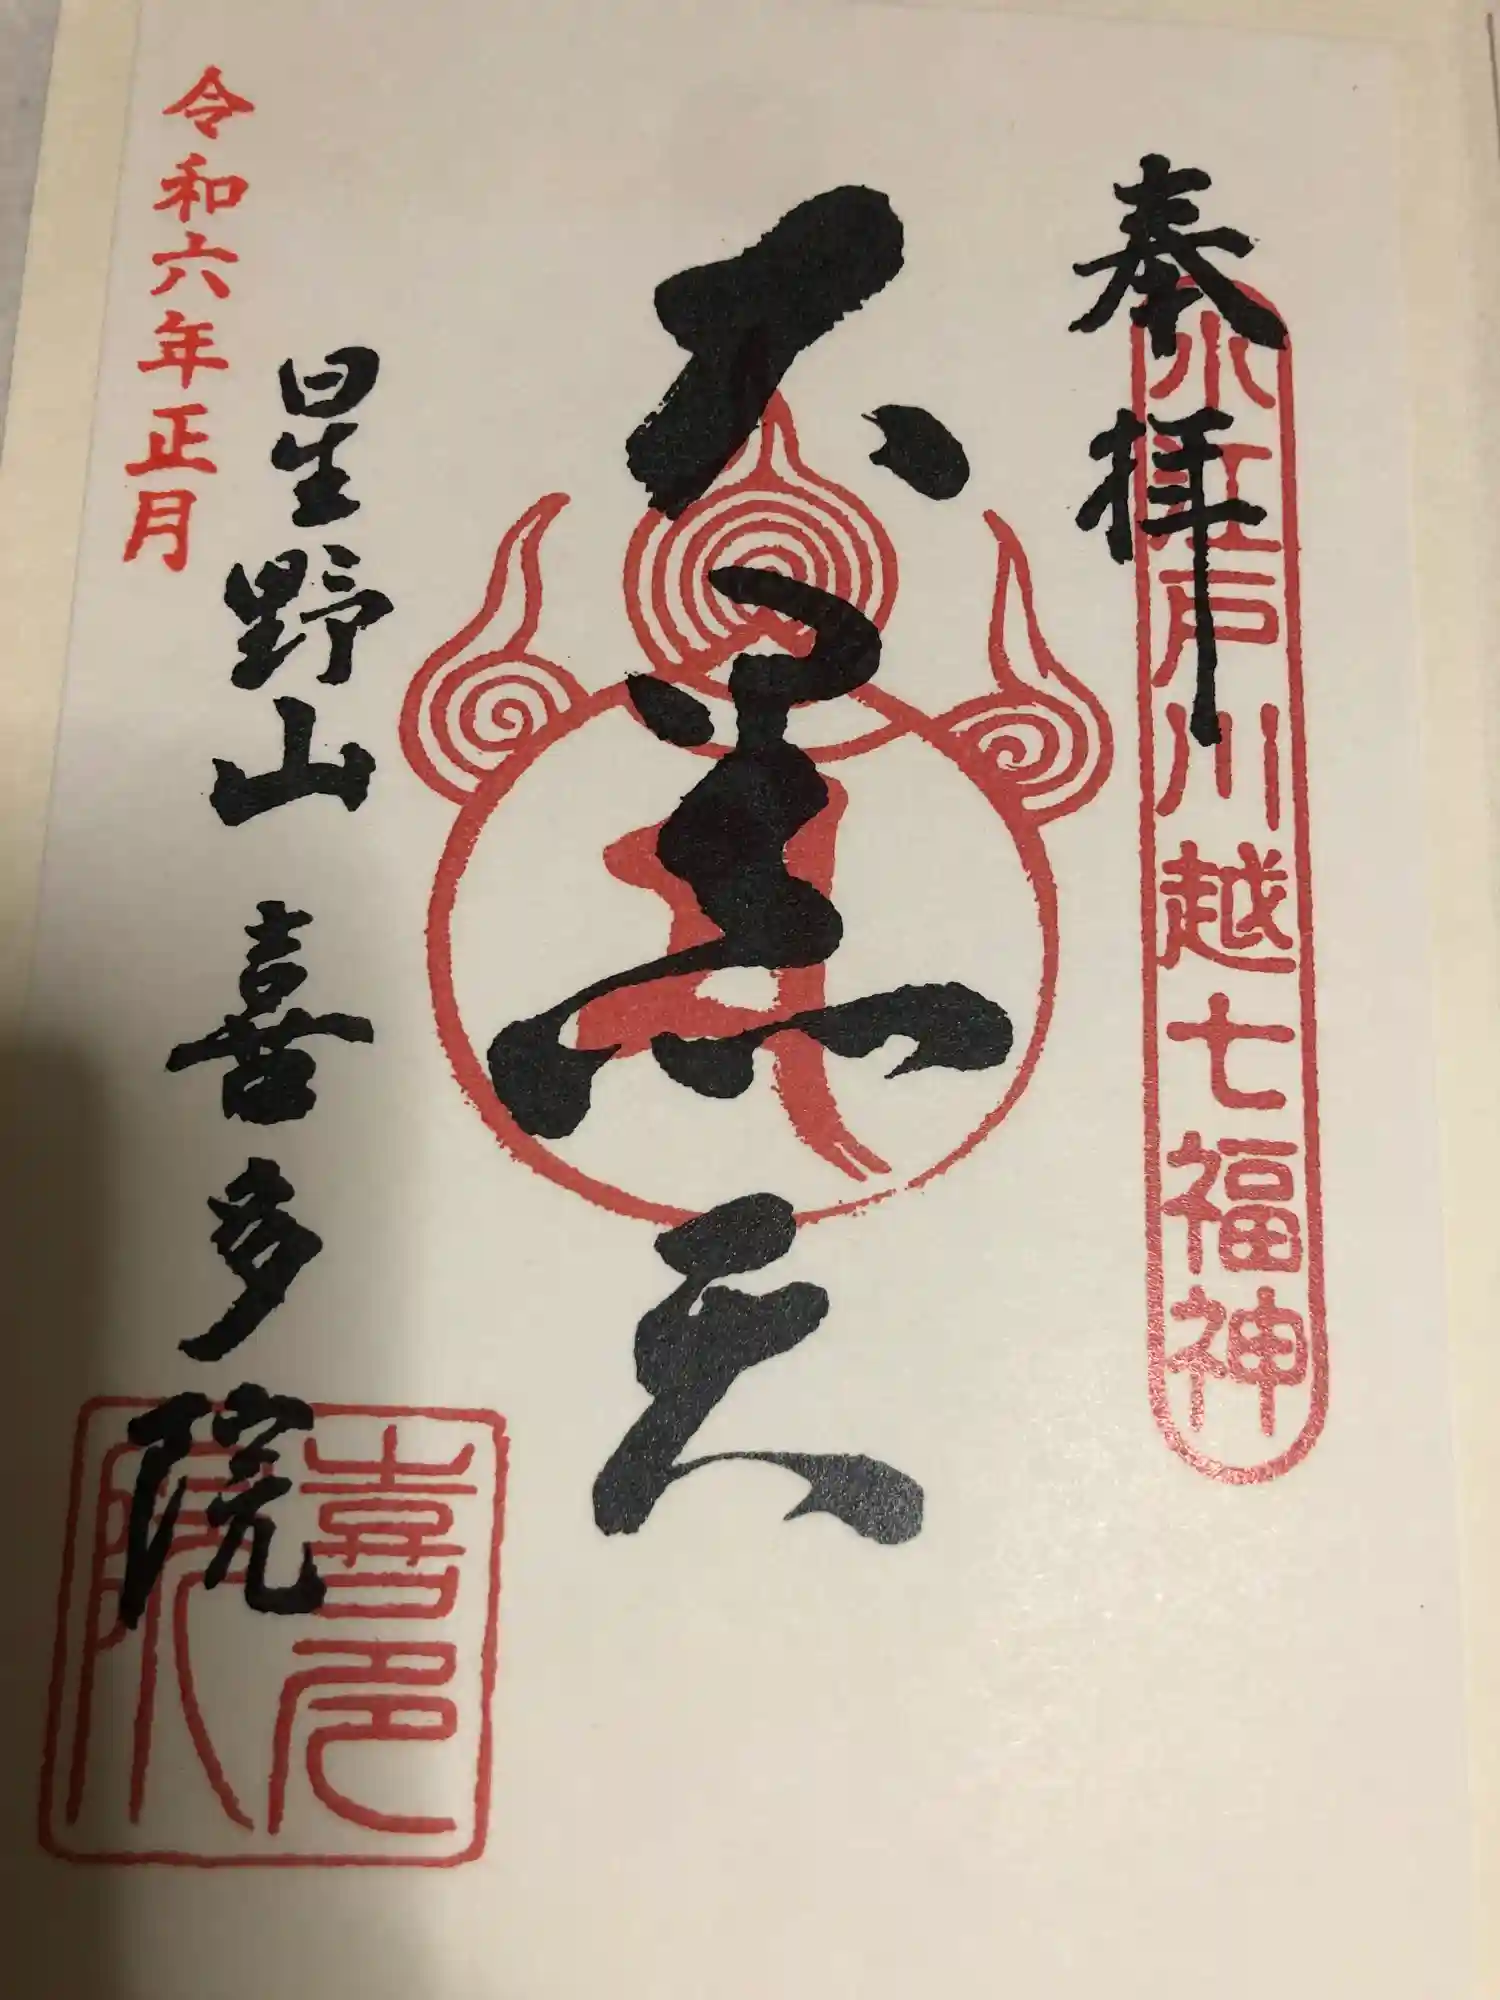 奉拝
小江戸川越七福神
大黒天
星野山 喜多院
令和六年正月
喜多院